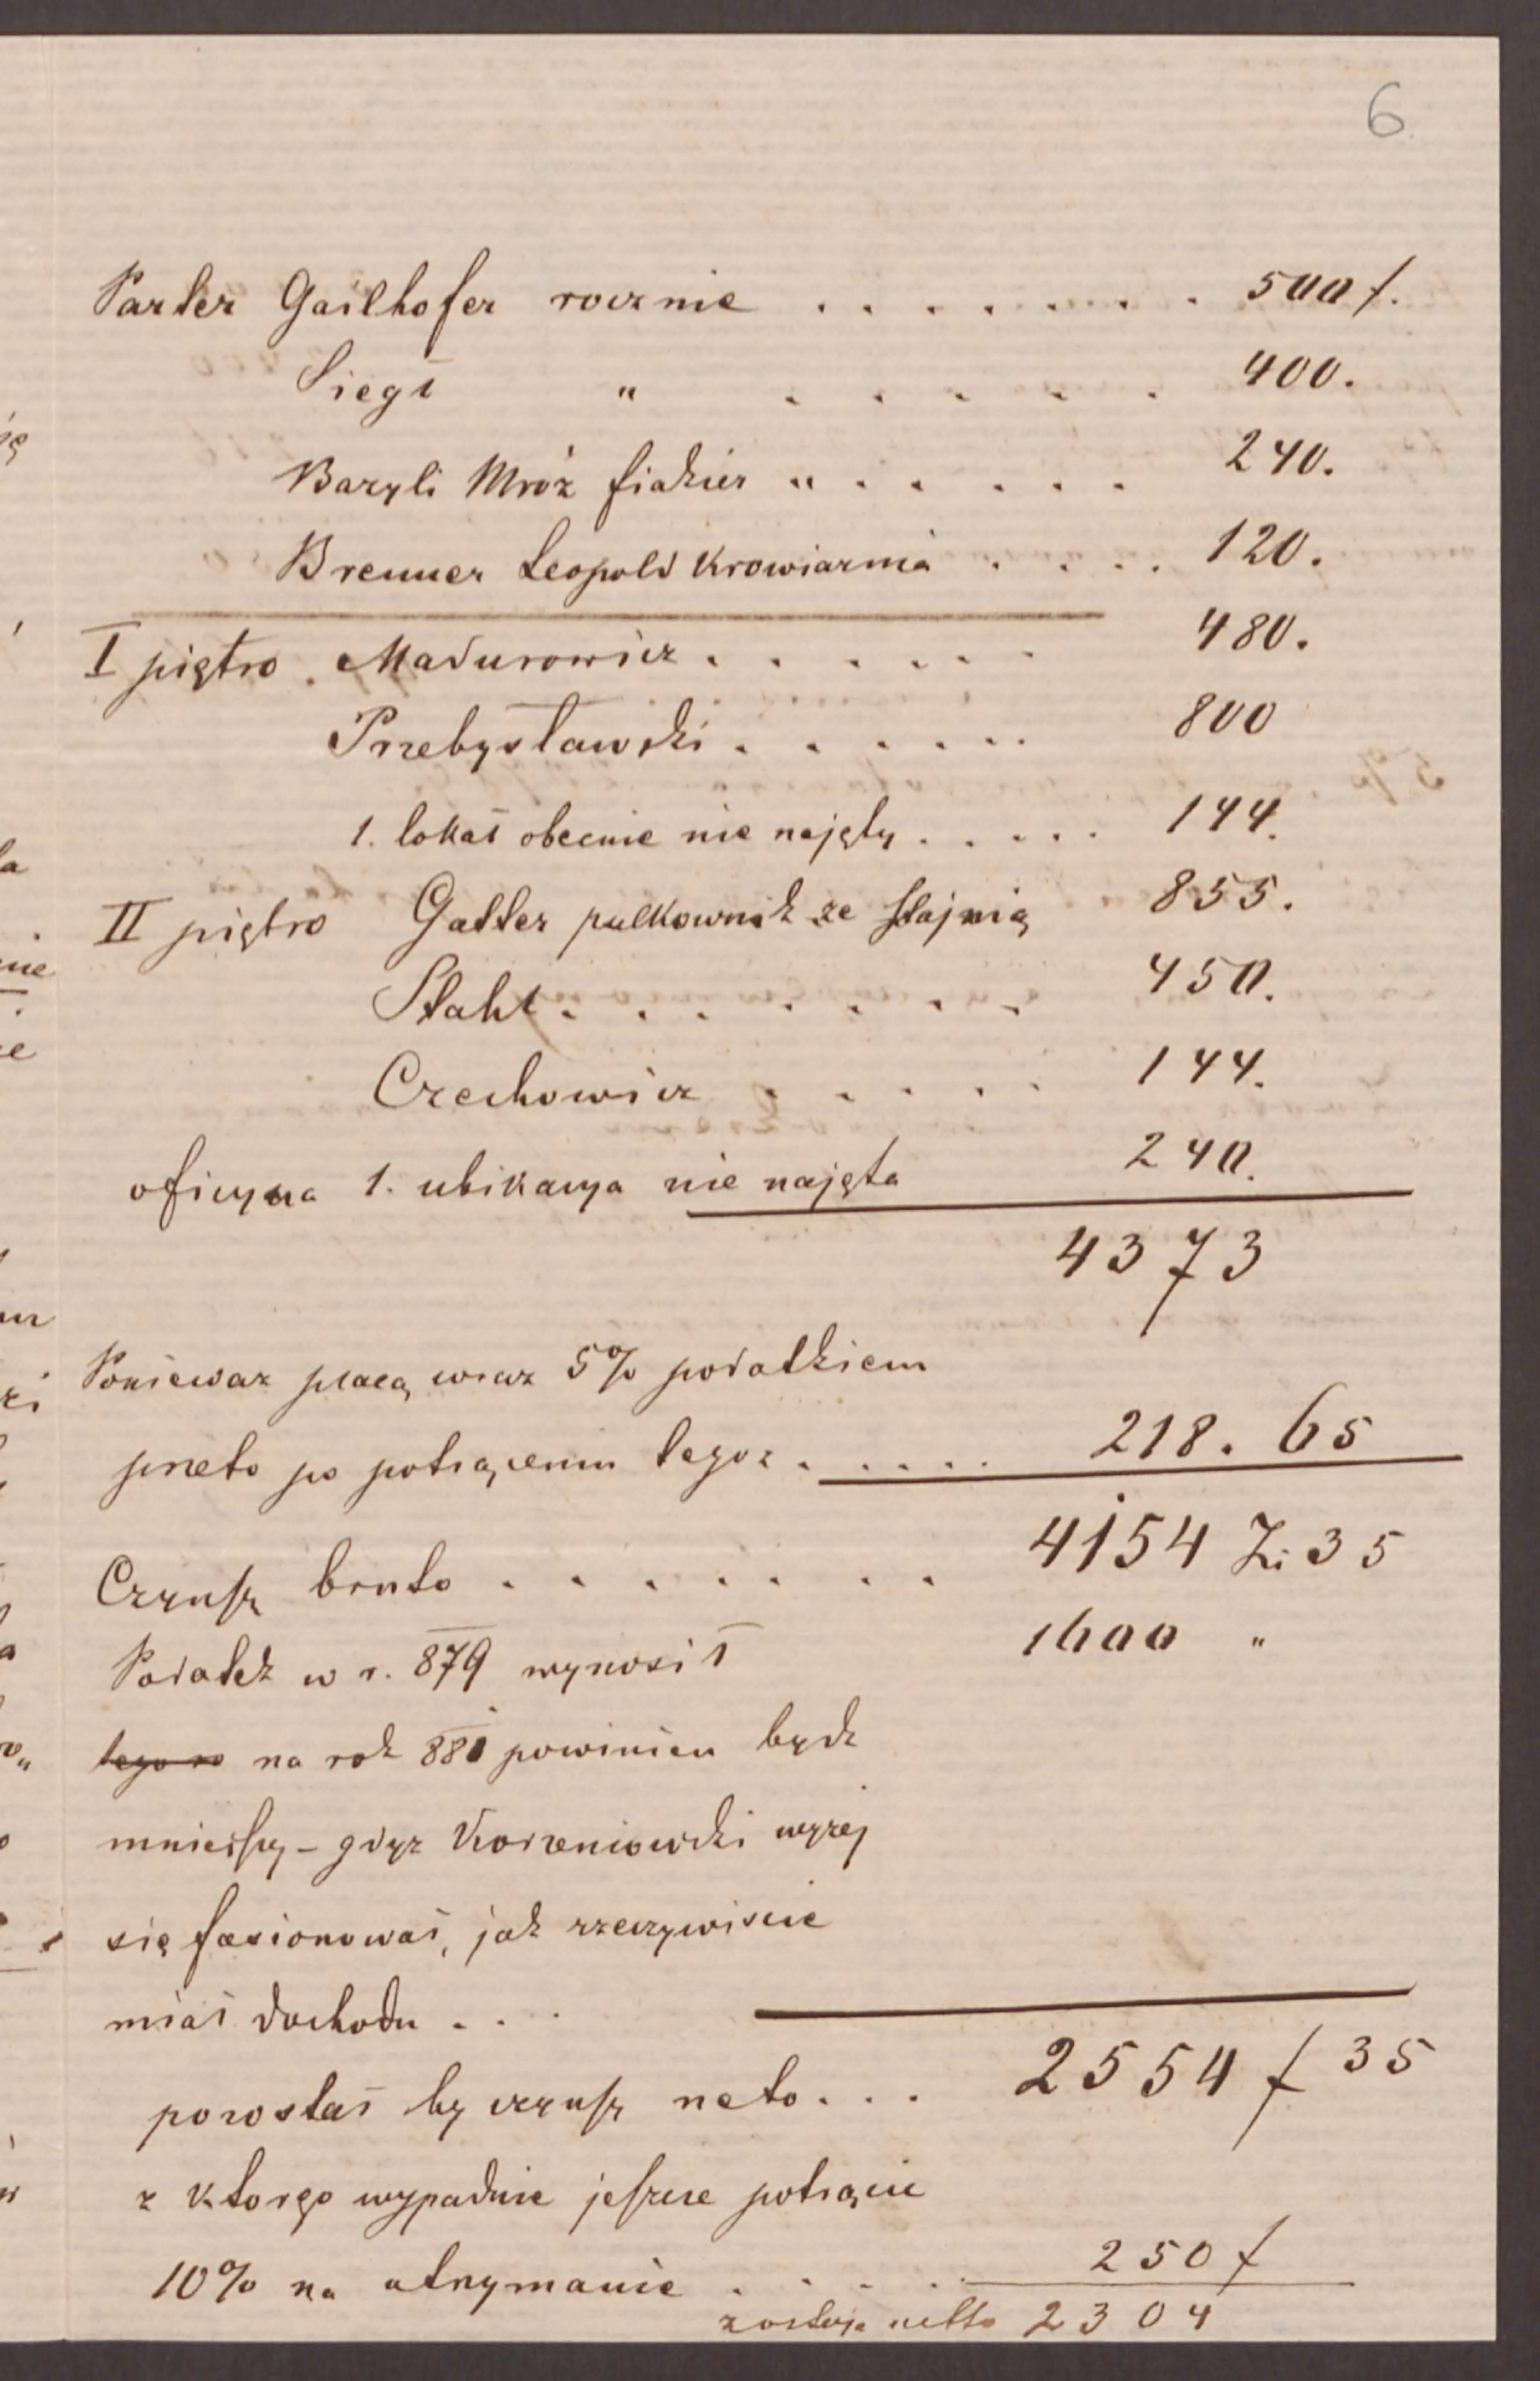 6.
Parter Gailhofer rocznie . . . . . . . . 500 f.
Siegł " . . . . . 400.
Bazyli Mróz fiakier " . . . . . 240.
Brenner Leopold Krowiarnia . . . . 120.
I piętro . Madurowicz . . . . . . 480.
Przebysławski . . . . . . 800
1. lokal obecnie nie najęty . . . . . 144.
II piętro Gatter pułkownik ze stajnią 855.
Stahl . . . . . . . 450.
Czechowicz . . . . . 144.
oficyna 1. ubikacya nie najęta 240.
4373
Ponieważ płacą wraz 5% podatkiem
przeto po potrąceniu tegoż . . . . . 218. 65
Czynsz bruto . . . . . . . 4154 Zł. 35
Podatek w r. 879 wynosił 1600 "
na rok 880 powinien bydź
mniejszy - gdyż Korzeniowski wyżej
się fasionował, jak rzeczywiscie
miał dochodu . . .
pozostał by czynsz neto . . . 2554 f 35
z ktorego wypadnie jeszcze potrącić
10% na utrzymanie . . . . 250 f
zostaje netto 2304